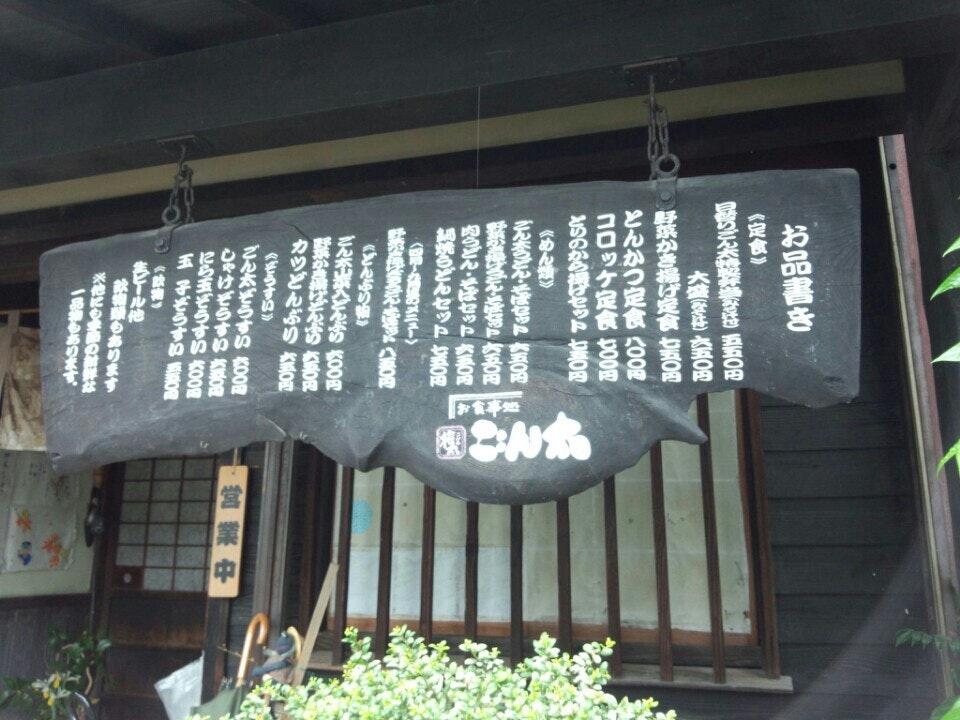 お品書き
《定食》
日替りごん太御膳 五五〇円
大盛 六五〇円
野菜かき揚げ定食 七五〇円
とんかつ定食 八〇〇円
コロッケ定食 七〇〇円
とりのから揚げセット 七五〇円
《めん類》
ごん太うどん・そばセット 六五〇円
野菜かき揚げうどん・そばセット 六五〇円
肉うどん・そばセット 六五〇円
鍋焼うどんセット 七五〇円
野菜かき揚ざるうどん・そばセット 八五〇円
《どんぶり物》
ごん太山菜どんぶり 六〇〇円
野菜かき揚げどんぶり 六五〇円
カツどんぶり 六五〇円
《ぞうすい》
ごん太ぞうすい 六〇〇円
しゃけぞうすい 六五〇円
にら玉ぞうすい 六〇〇円
玉子ぞうすい 五五〇円
《飲物》
生ビール他
飲物類もあります
※他にも季節の新鮮な
一品物もあります。
お食事処
ごん太
営業中